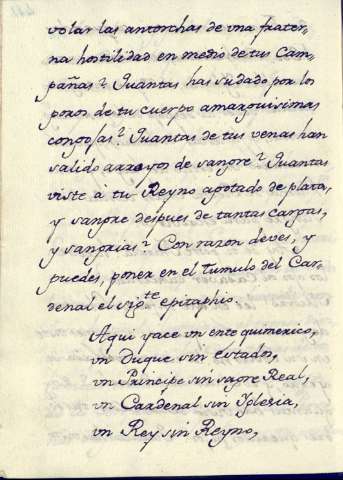 volar las antorchas de vna frater=
na hostilidad en medio de tus Cam=
pañas? Quantas has sudado por los
poros de tu cuerpo amarguisimas
congojas? Quantas de tus venas han
salido arroyos de sangre? Quantas
viste à tu Reyno agotado de plata,
y sangre despues de tantas cargas,
y sangrias? Con razon deves, y
puedes, poner en el tumulo del Car=
denal el sigte epitaphio.
Aqui yace vn ente quimerico,
vn Duque sin estados,
vn Principe sin sagre Real,
vn Cardenal sin Yglesia,
vn Rey sin Reyno,